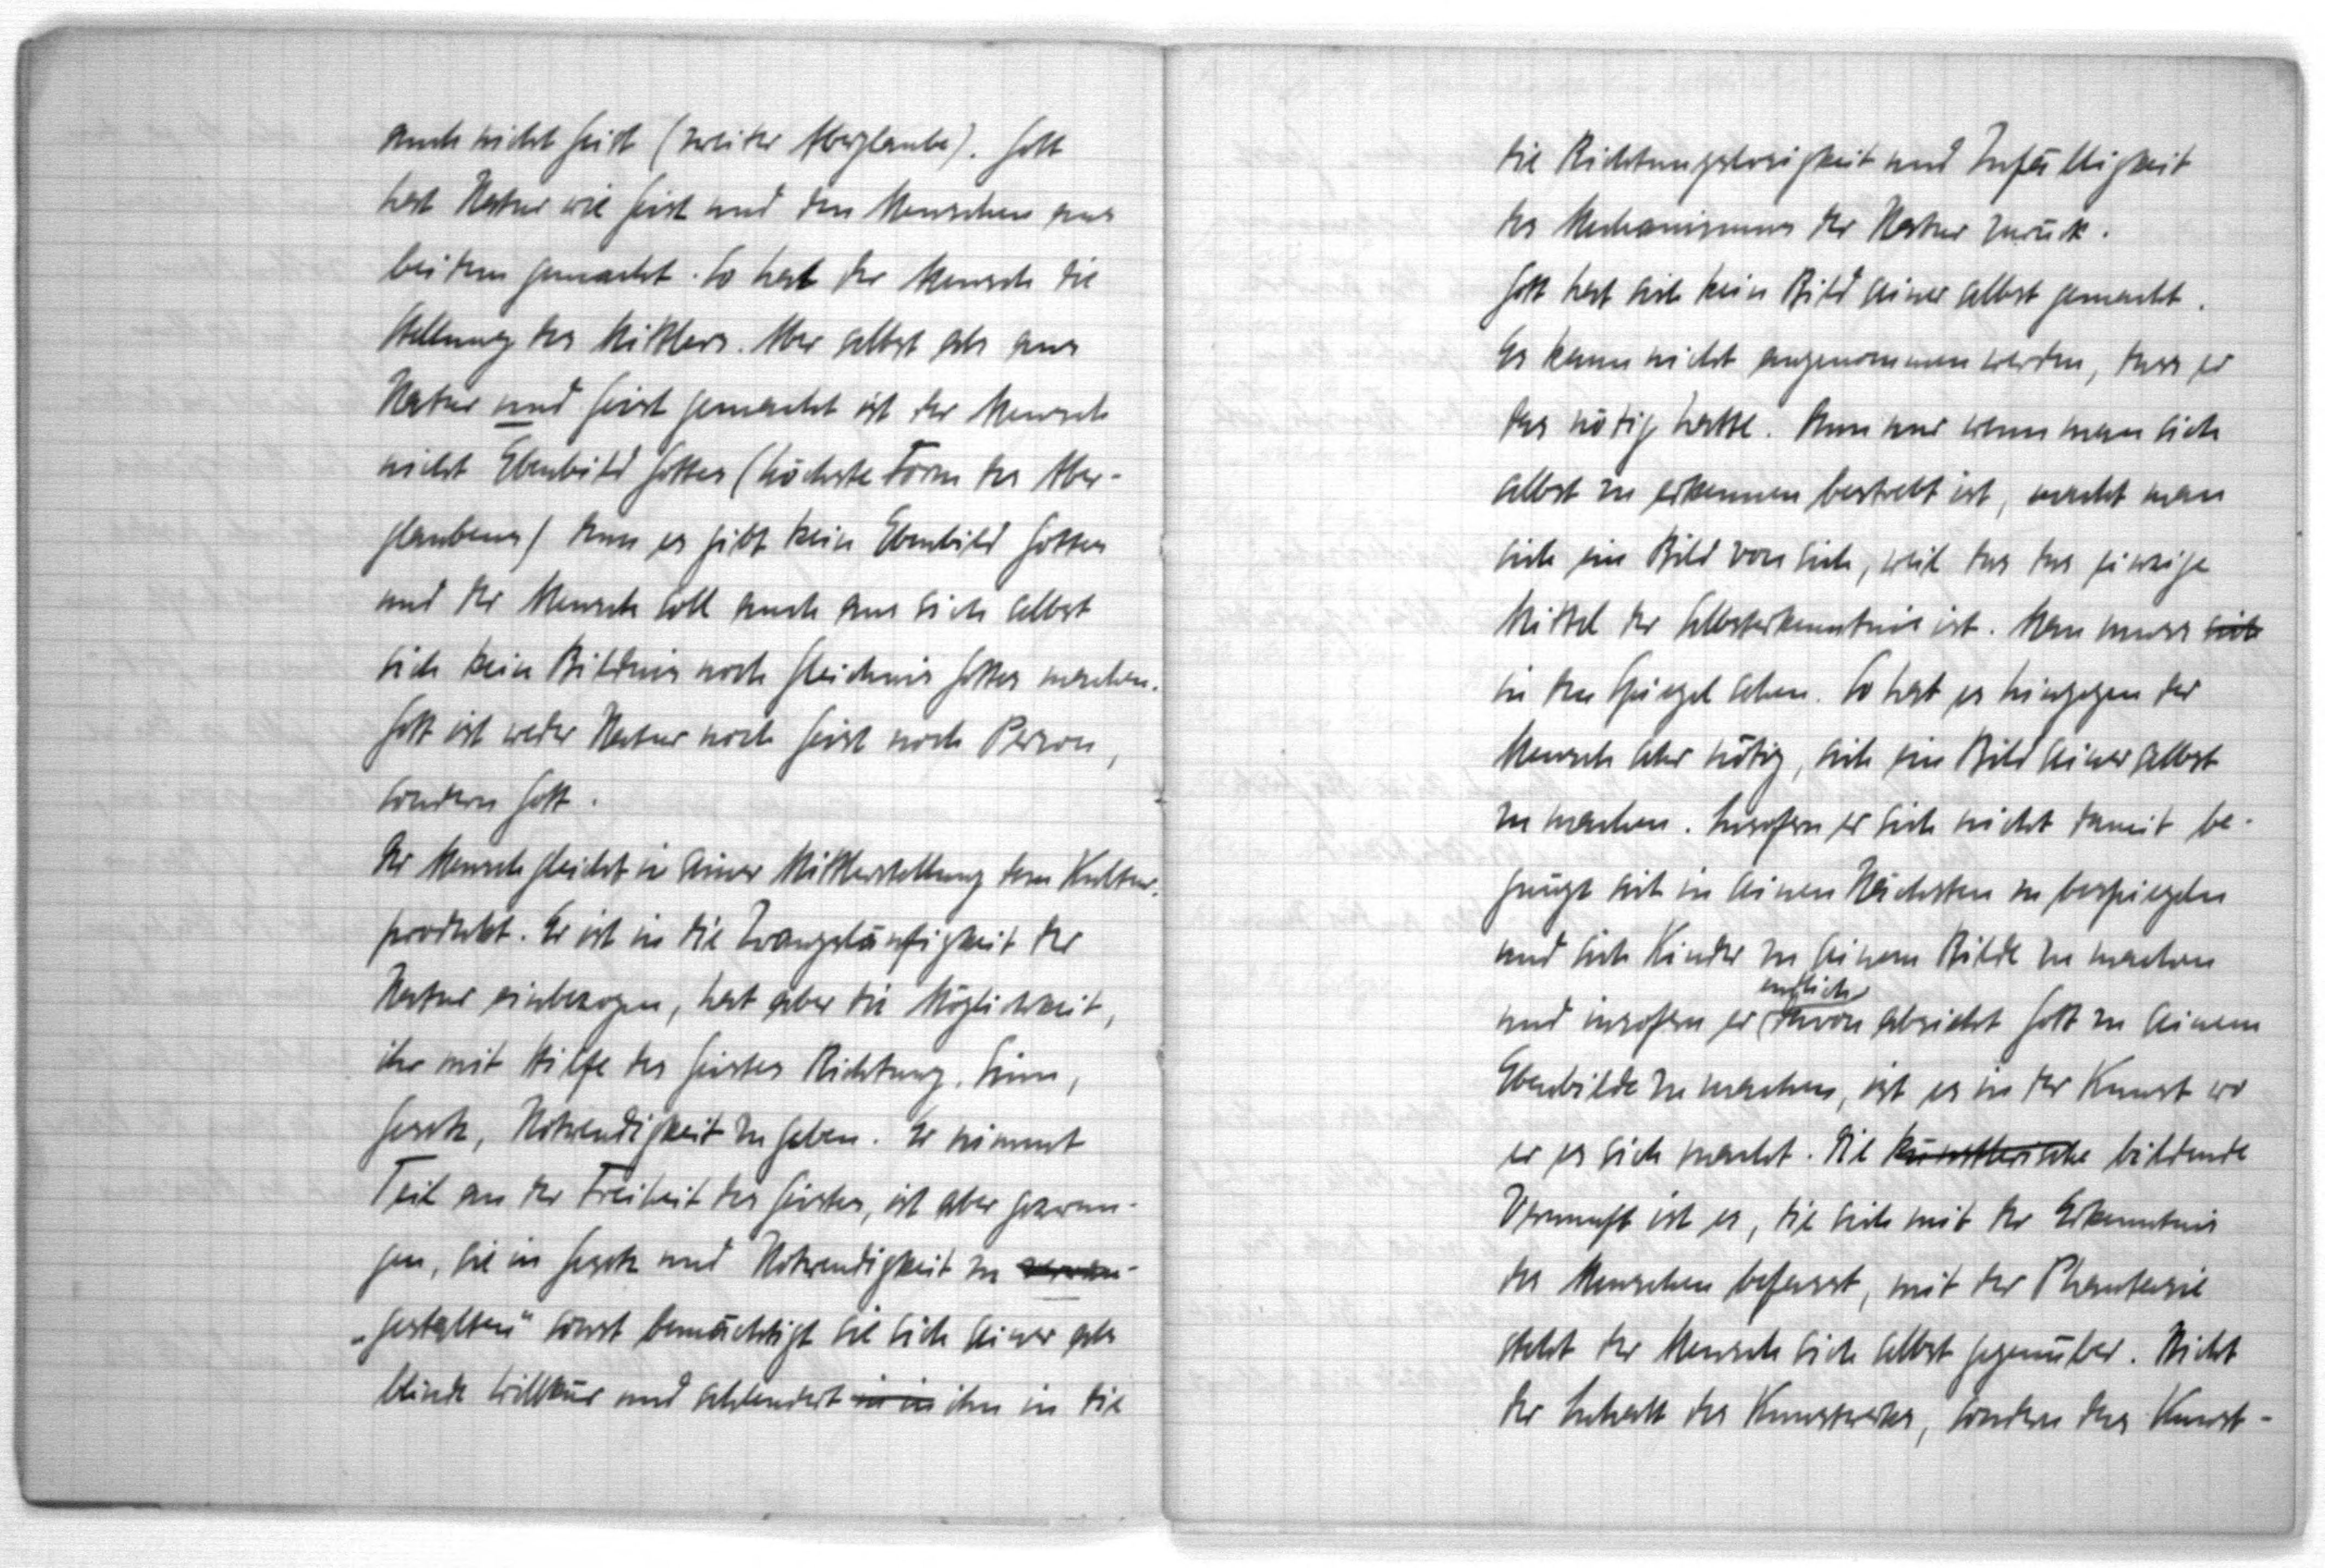 auch nicht Geist (zweiter Aberglaube). Gott
hat Natur wie Geist und den Menschen aus
beidem gemacht. So hat der Mensch die
Stellung des Mittlers. Aber selbst als aus
Natur und Geist gemacht ist der Mensch
nicht Ebenbild Gottes (höchste Form des Aber-
glaubens) denn es gibt kein Ebenbild Gottes
und der Mensch soll auch aus sich selbst
sich kein Bildnis noch Gleichnis Gottes machen.
Gott ist weder Natur noch Geist noch Person,
sondern Gott.
Der Mensch gleicht in seiner Mittlerstellung dem Kultur-
produkt. Er ist in die Zwangsläufigkeit der
Natur einbezogen, hat aber die Möglichkeit,
ihr mit Hilfe des Geistes Richtung, Sinn,
Gesetz, Notwendigkeit zu geben. Er nimmt
Teil an der Freiheit des Geistes, ist aber gezwun-
gen, sie in Gesetz und Notwendigkeit zu
„gestalten" sonst bemächtigt sie sich seiner als
blinde Willkür und schleudert in in ihn in die
die Richtungslosigkeit und Zufälligkeit
des Mechanismus der Natur zurück.
Gott hat sich kein Bild seiner selbst gemacht.
Es kann nicht angenommen werden, dass er
das nötig hatte. Denn nur wenn man sich
selbst zu erkennen bestrebt ist, macht man
sich ein Bild von sich, weil das das einzige
Mittel der Selbsterkenntnis ist. Man muss sich
in den Spiegel sehen. So hat es hingegen der
Mensch sehr nötig, sich ein Bild seiner selbst
zu machen. Insofern er sich nicht damit be-
gnügt sich in seinen Nächsten zu bespiegeln
und sich Kinder zu seinem Bilde zu machen
endlich
und insofern er davon absieht Gott zu seinem
Ebenbilde zu machen, ist es in der Kunst wo
er es sich macht. Die künstlerische bildende
Vernunft ist es, die sich mit der Erkenntnis
des Menschen befasst, mit der Phantasie
steht der Mensch sich selbst gegenüber. Nicht
der Inhalt des Kunstwerkes, sondern das Kunst-